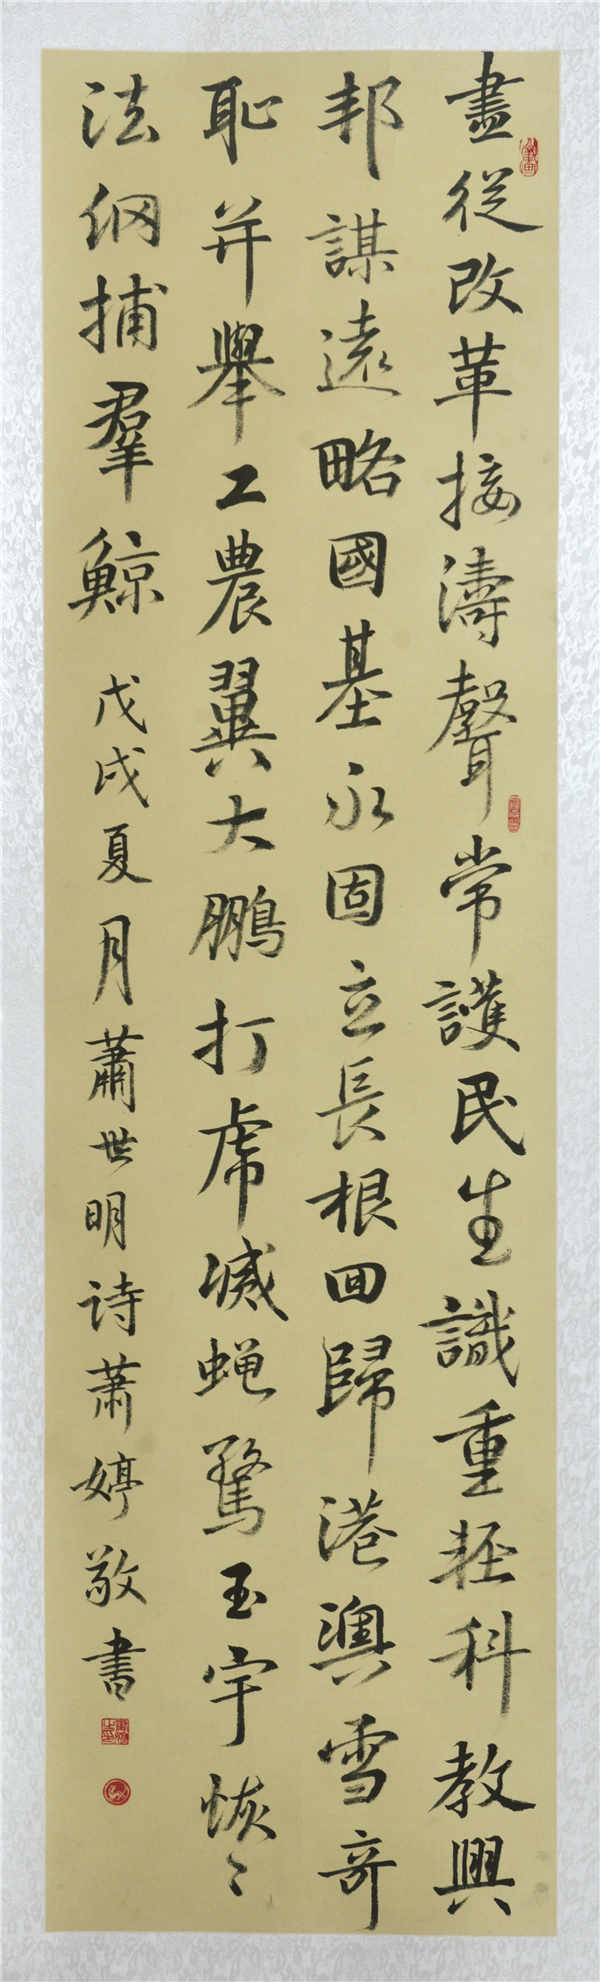 盡從改革接濤聲常護民生識重輕科教興
邦謀遠略國基永固立長根回歸港澳雪奇
恥并舉工農翼大鵬打虎滅蝇驚玉宇恢〻
法網捕羣鯨 戊戌夏月蕭世明诗萧婷敬書